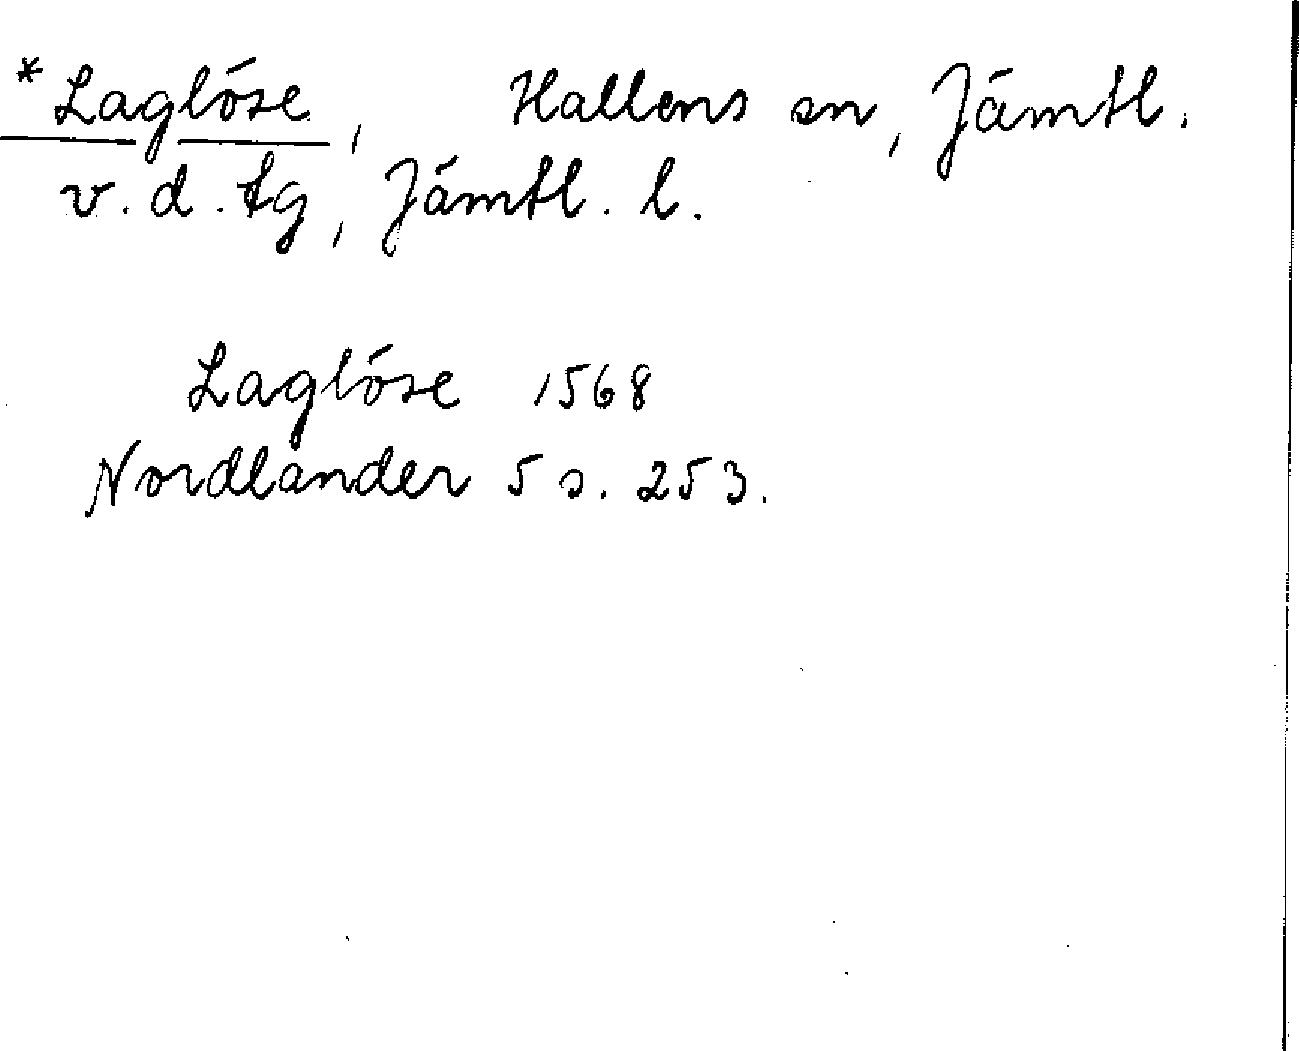 *Laglöse, Hallens sn, Jämtl.
v. d. tg, Jämtl. l.
Laglöse 1568
Nordlander 5 s. 253.